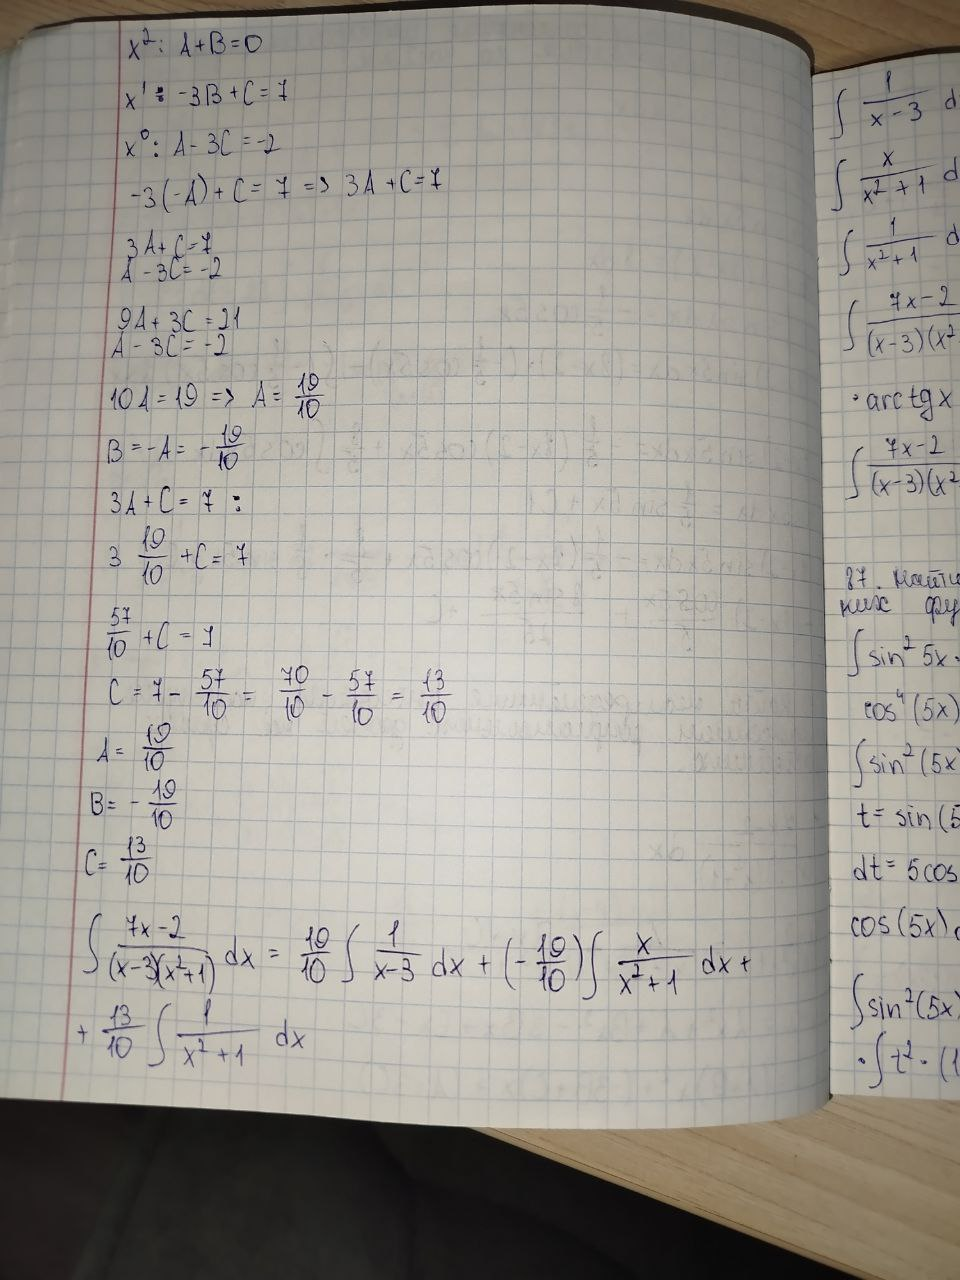 x²: A+B=0
x¹: -3B+C=7
x⁰: A-3C=-2
-3(-A)+C=7 => 3A+C=7
3A+C=7
A-3C=-2
9A+3C=21
A-3C=-2
10A=19 => A=19/10
B=-A=-19/10
3A+C=7:
3 19/10 +C=7
57/10 +C=7
C=7-57/10=70/10-57/10=13/10
A=19/10
B=-19/10
C=13/10
∫ (7x-2)/((x-3)(x²+1)) dx = 19/10 ∫ 1/(x-3) dx + (-19/10) ∫ x/(x²+1) dx +
+ 13/10 ∫ 1/(x²+1) dx
∫ 1/(x-3) d
∫ x/(x²+1) d
∫ 1/(x²+1) d
∫ (7x-2)/((x-3)(x²
· arctgx
∫ (7x-2)/((x-3)(x²
87. Найти
ких фу
∫ sin² 5x·
cos⁴(5x)
∫ sin²(5x
t= sin(5
dt= 5cos
cos(5x)
∫ sin²(5x)
·∫ t²·(1